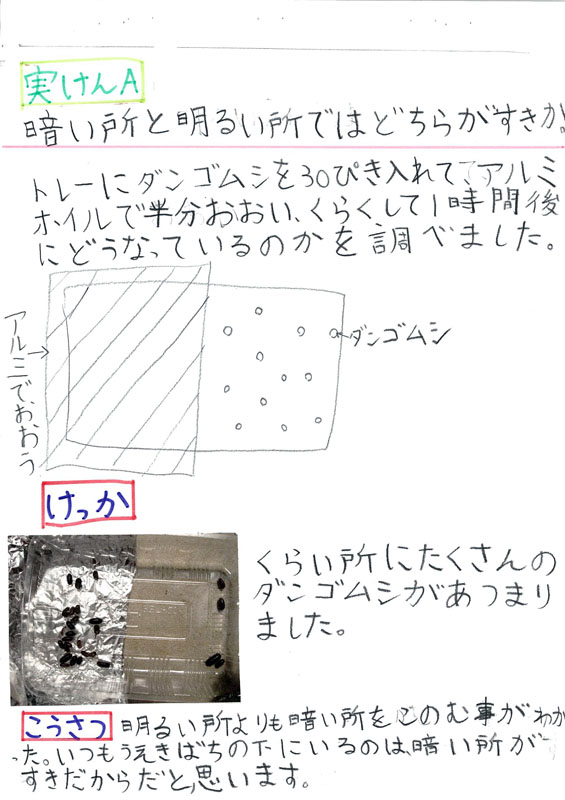 実けんA
暗い所と明るい所ではどちらがすきか。
トレーにダンゴムシを30ぴき入れて、アルミ
ホイルで半分おおい、くらくして1時間後
にどうなっているのかを調べました。
アルミで、おおう
ダンゴムシ
けっか
くらい所にたくさんの
ダンゴムシがあつまり
ました。
こうさつ 明るい所よりも暗い所をこのむ事がわか
った。いつもうえきばちの下にいるのは、暗い所が
すきだからだと、思います。